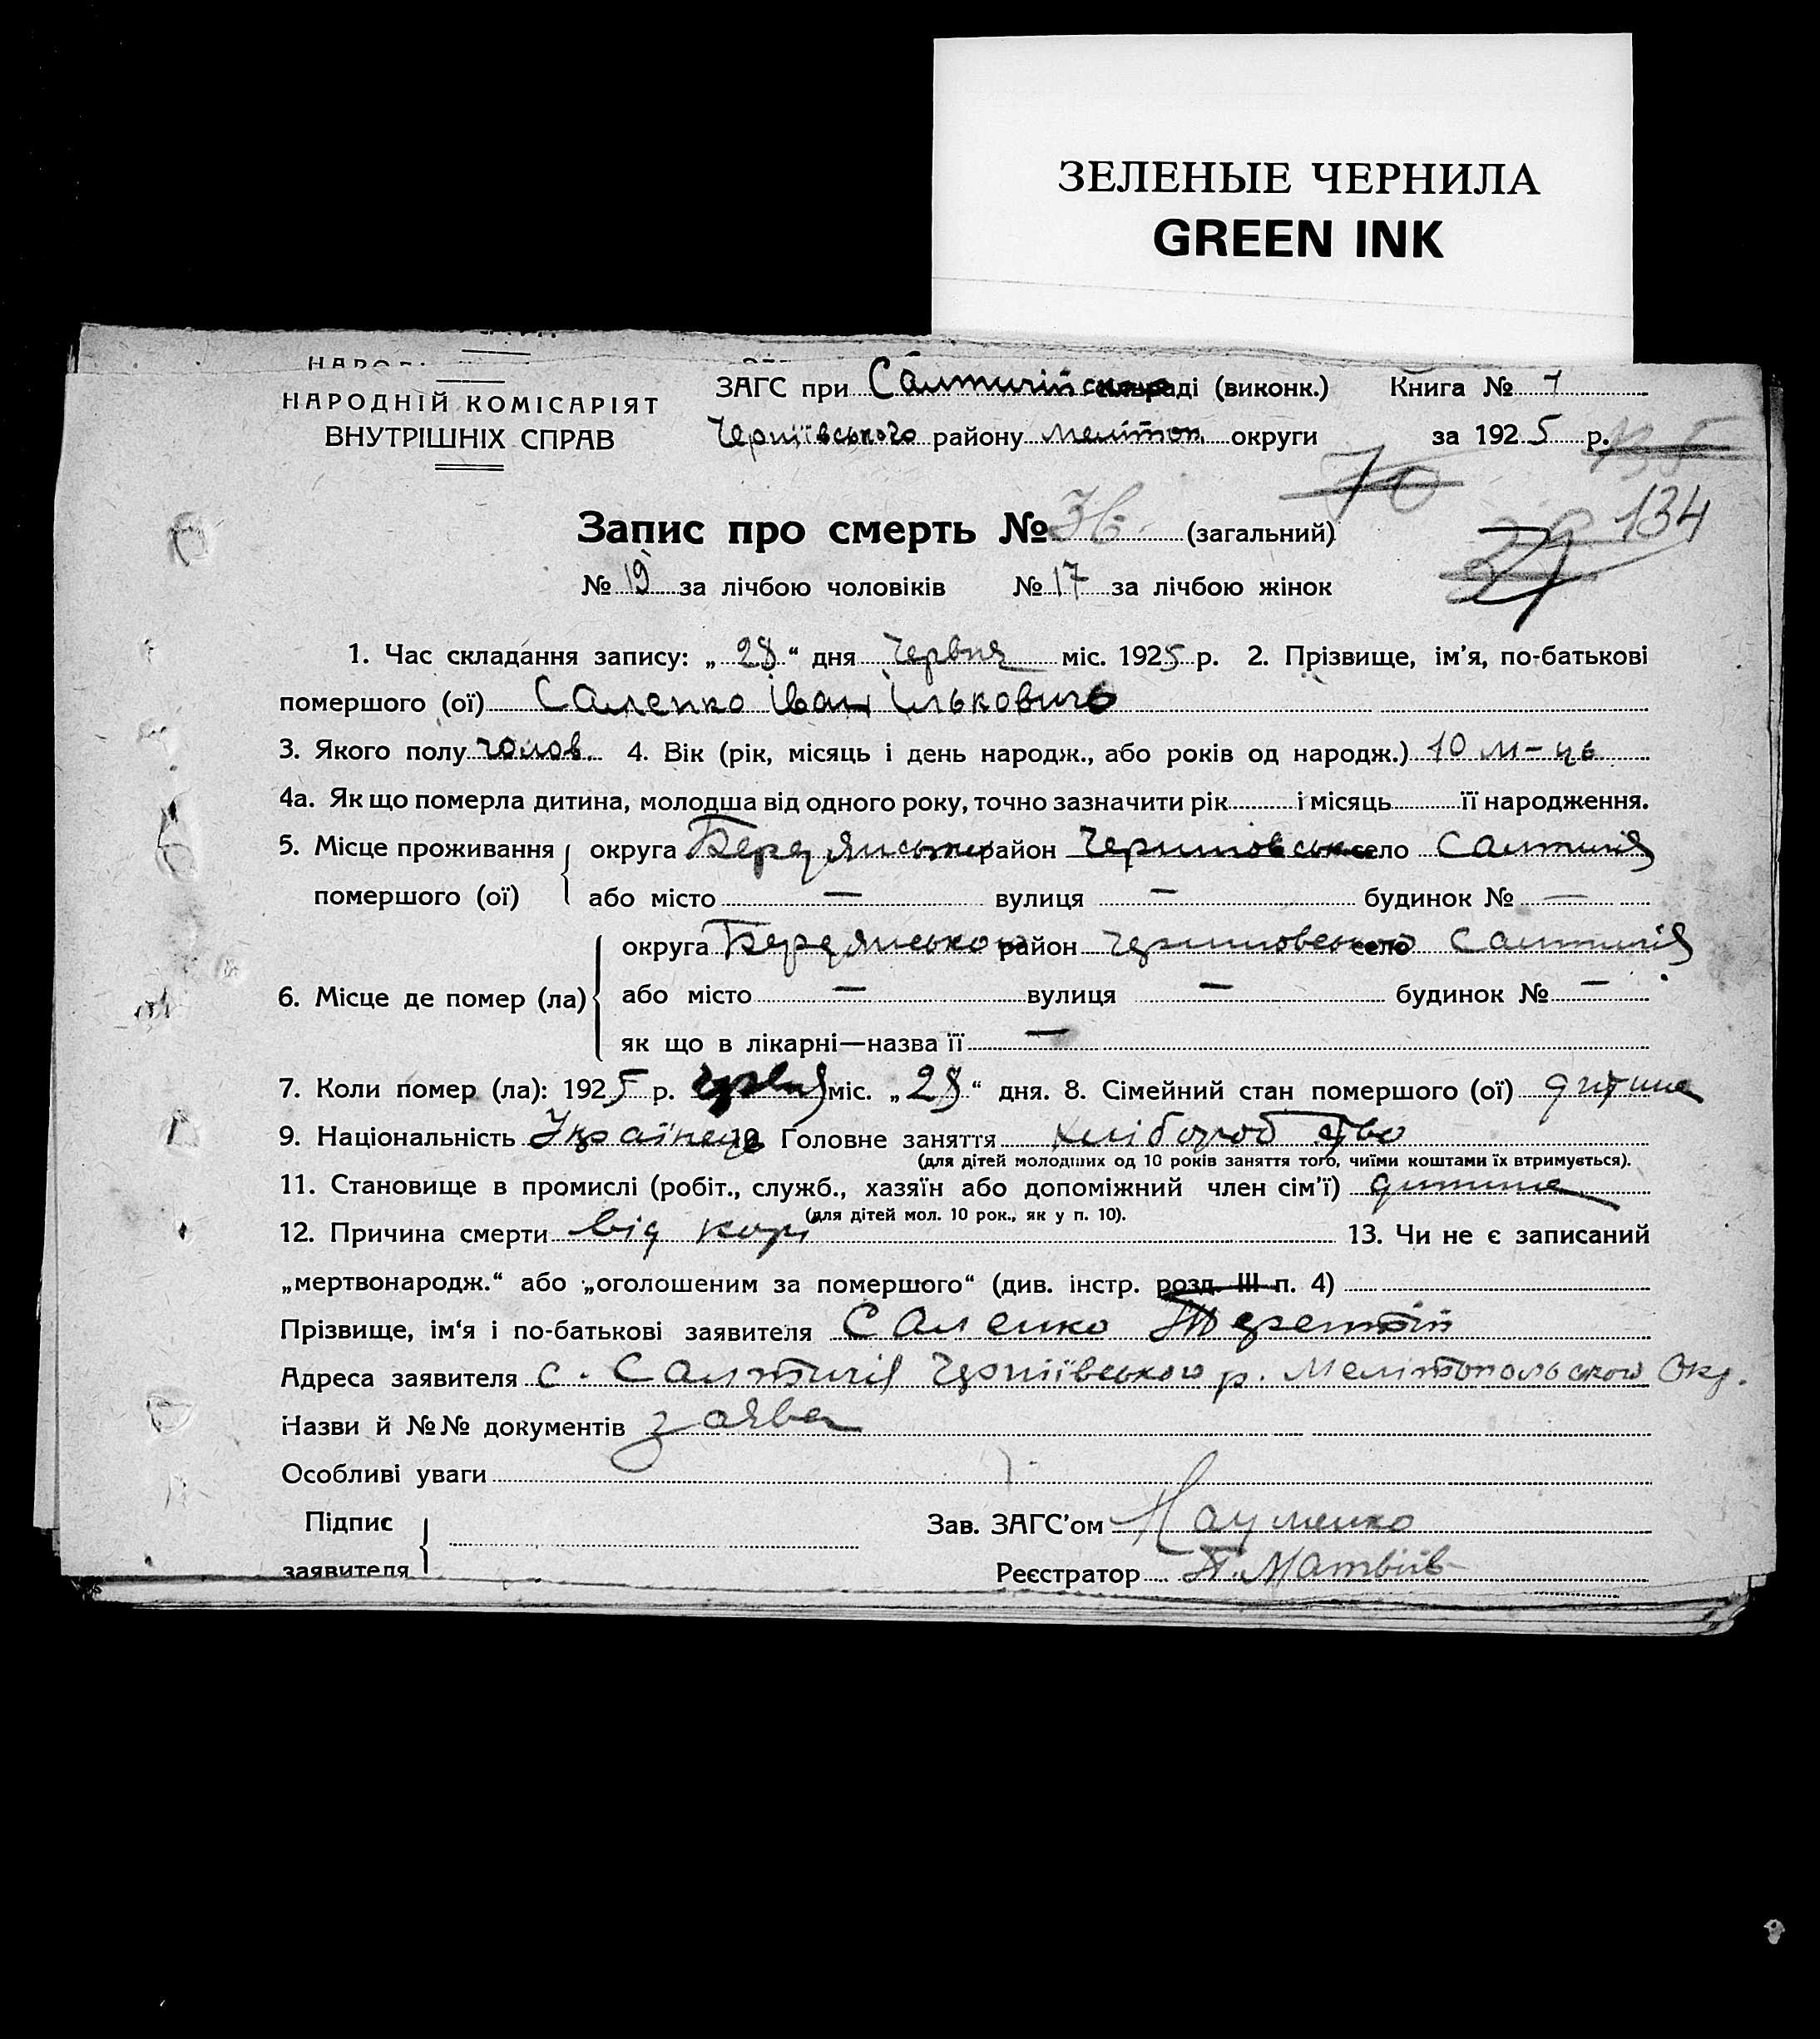 ЗЕЛЕНЫЕ ЧЕРНИЛА
GREEN INK
НАРОДНІЙ КОМІСАРІЯТ
ВНУТРІШНІХ СПРАВ
ЗАГС при Салтичійській раді (виконк.) Книга № 1
Черніївського району Мелітоп. округи за 1925 р.
70 134
Запис про смерть № 36 (загальний)
№ 19 за лічбою чоловіків № 17 за лічбою жінок
1. Час складання запису: „28“ дня Червня міс. 1925 р. 2. Прізвище, ім’я, по-батькові
помершого (ої) Саленко Іван Ількович
3. Якого полу чолов. 4. Вік (рік, місяць і день народж., або років од народж.) 10 м-ць
4а. Як що померла дитина, молодша від одного року, точно зазначити рік і місяць її народження.
5. Місце проживання помершого (ої) округа Бердянської район село Салтичія
або місто — вулиця — будинок № —
6. Місце де помер (ла) округа Бердянського район село Салтичія
або місто — вулиця — будинок № —
як що в лікарні—назва її —
7. Коли помер (ла): 1925 р. Червня міс. „28“ дня. 8. Сімейний стан помершого (ої) дитина
9. Національність Українець 10. Головне заняття хліборобство
(для дітей молодших од 10 років заняття того, чиїми коштами їх втримується).
11. Становище в промислі (робіт., служб., хазяїн або допоміжний член сім’ї) дитина
(для дітей мол. 10 рок., як у п. 10).
12. Причина смерти від корі 13. Чи не є записаний
„мертвонародж.“ або „оголошеним за помершого“ (див. інстр. розд. III п. 4)
Прізвище, ім‘я і по-батькові заявителя Саленко Терентій
Адреса заявителя с. Салтичія Черніївського р. Мелітопольської Окр.
Назви й №№ документів заява
Особливі уваги
Підпис заявителя
Зав. ЗАГС’ом Науменко
Реєстратор П. Матвіїв